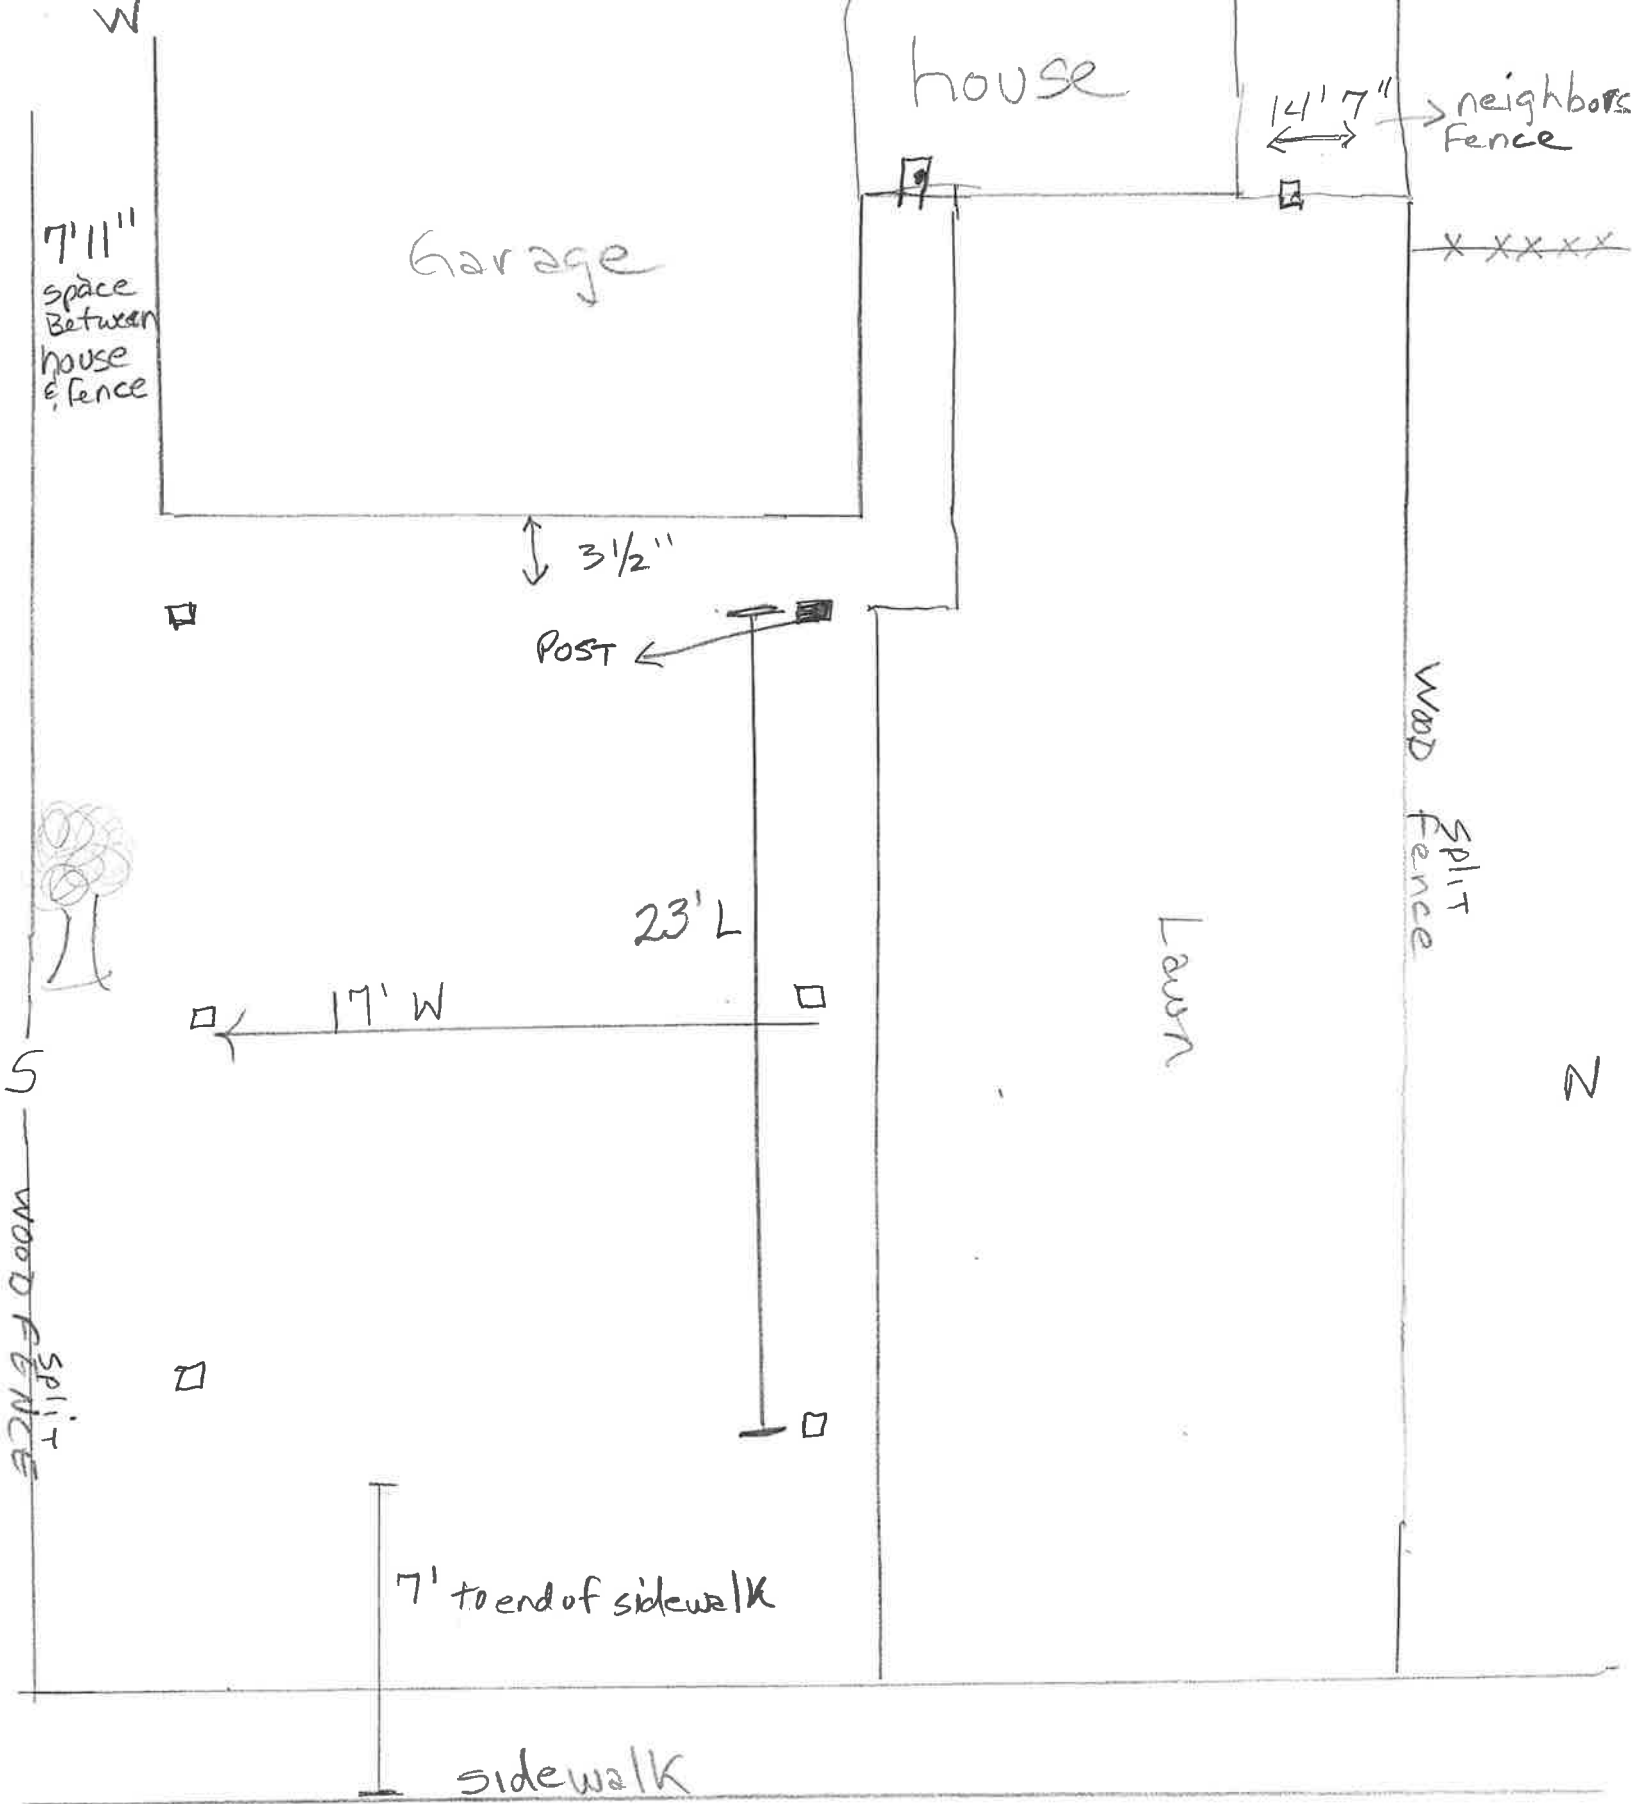 W
house
14' 7"
neighbors
Fence
7'11"
space
Between
house
& fence
Garage
X XXXX
3 1/2"
POST
WOOD Split
Fence
23' L
Lawn
17' W
S
N
WOOD FENCE
Split
7' to end of sidewalk
sidewalk